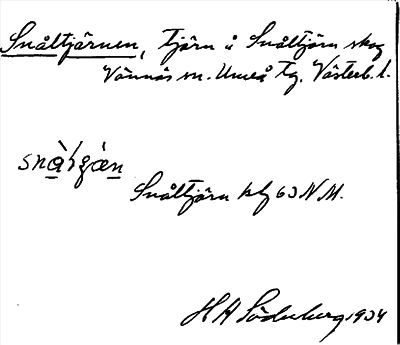 Snåltjärnen, tjärn å Snåltjärn skog
Vännäs sn. Umeå tg. Västerb. l.
Snåltjärn kbl 63 N M.
H A Söderberg 1934